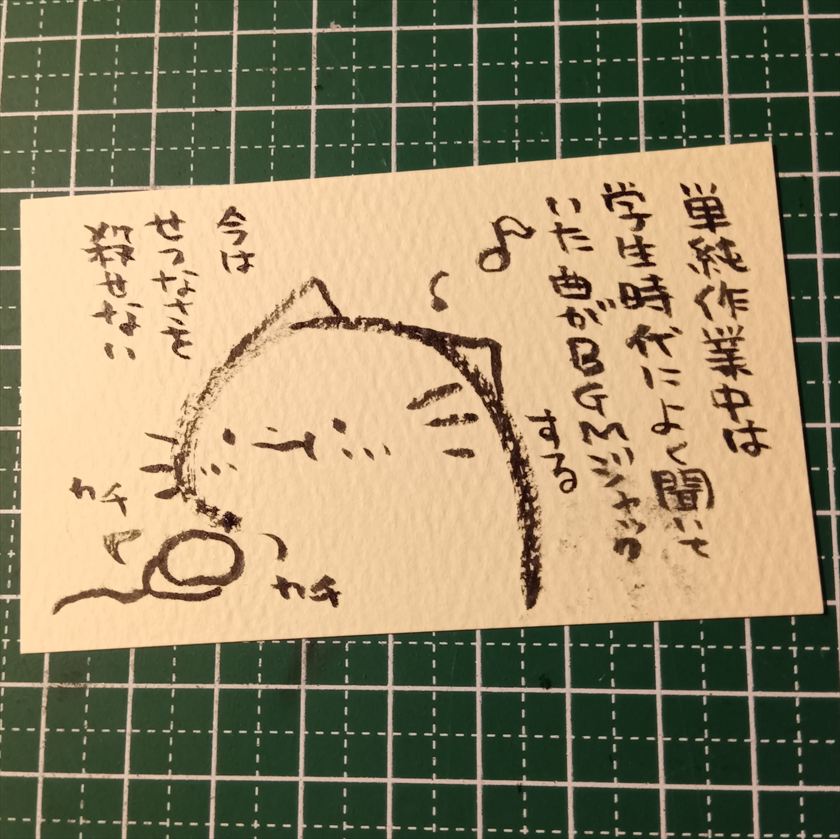 単純作業中は
学生時代によく聞いて
いた曲がBGMジャック
する
今は
せつなさを
殺せない
カチ
カチ